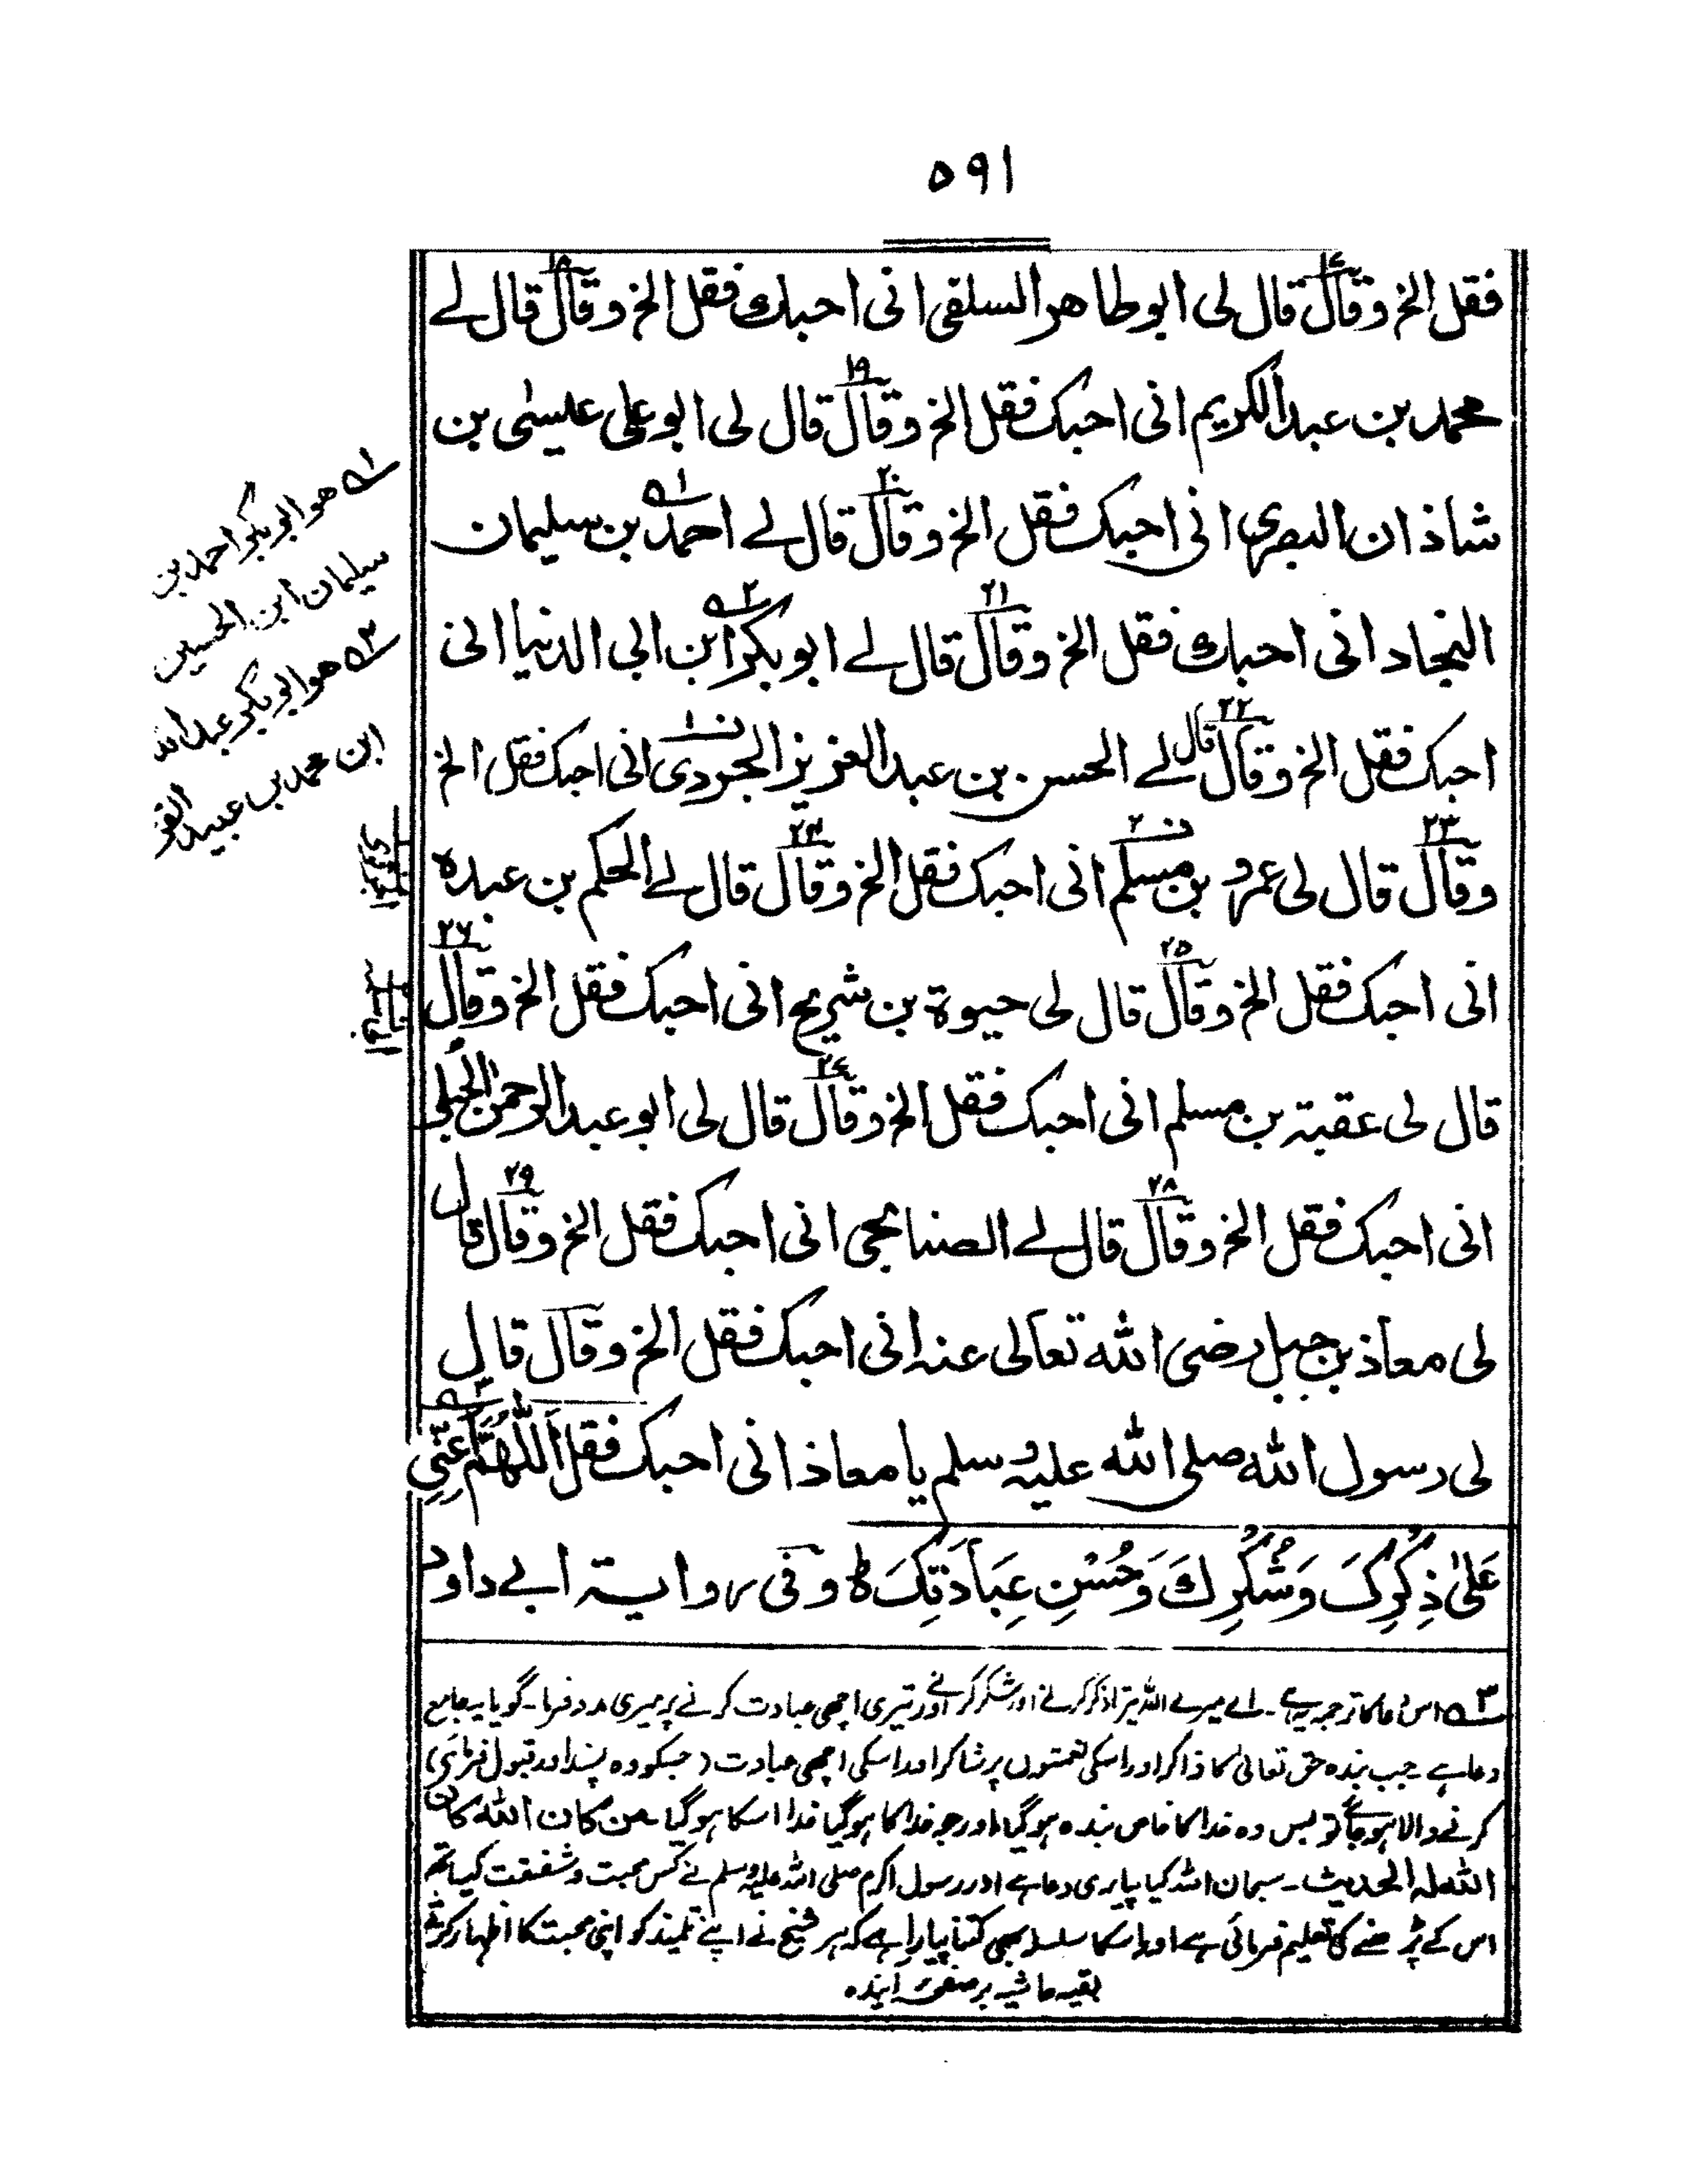 ۵۹۱
فقل الخ وقال۱۷ قال لی ابوطاهر السلفی انی احبك فقل الخ وقال۱۸ قال لے
محمد بن عبدالکریم انی احبک فقل الخ وقال۱۹ قال لی ابوعلی عیسٰی بن
شاذان البصری انی احبک فقل الخ وقال۲۰ قال لے احمد۱ بن سلیمان
النجاد انی احبك فقل الخ وقال۲۱ قال لے ابوبکر۲ ابن ابی الدنیا انی
احبک فقل الخ وقال۲۲ قال لے الحسن بن عبدالعزیز الجروی انی احبک فقل الخ
وقال۲۳ قال لی عمرو بن مسلم انی احبک فقل الخ وقال۲۴ قال لے الحکم بن عبدہ
انی احبک فقل الخ وقال۲۵ قال لی حیوة بن شریح انی احبک فقل الخ وقال۲۶
قال لی عقبۃ بن مسلم انی احبک فقل الخ وقال۲۷ قال لی ابو عبدالرحمٰن الحُبلی
انی احبک فقل الخ وقال۲۸ قال لے الصنابحی انی احبک فقل الخ وقال۲۹ قال
لی معاذ بن جبل رضی الله تعالی عنہ انی احبک فقل الخ وقال قال
لی رسول الله صلی الله علیہ وسلم یا معاذ انی احبک فقل اَللّٰهُمَّ۳ اَعِنِّی
عَلٰی ذِکْرِکَ وَشُکْرِكَ وَحُسْنِ عِبَادَتِکَ ط وفی روایۃ ابے داود
۱ ھو ابوبکر احمد بن
سلیمان ابن الحسین
۲ ھو ابوبکر عبداللہ
ابن محمد بن عبید
۳ اس دعا کا ترجمہ یہ ہے۔ اے میرے اللہ تیرا ذکر کرنے اور شکر کرنے اور تیری اچھی عبادت کرنے پر میری مدد فرما۔ گویا یہ جامع
دعا ہے جب بندہ حق تعالیٰ کا ذاکر اور اسکی نعمتوں پر شاکر اور اسکی اچھی عبادت (جسکو وہ پسند اور قبول فرمائے)
کرنے والا ہو جائے تو بس وہ خدا کا خاص بندہ ہو گیا اور جو خدا کا ہو گیا خدا اسکا ہو گیا۔ من کان اللہ کان
اللہ لہ الحدیث۔ سبحان اللہ کیا پیاری دعا ہے اور رسول اکرم صلی اللہ علیہ وسلم نے کس محبت وشفقت کیساتھ
اس کے پڑھنے کی تعلیم فرمائی ہے اور اسکا سلسلہ بھی کتنا پیارا ہے کہ ہر شیخ نے اپنے تلمیذ کو اپنی محبت کا اظہار کرتے
بقیہ حاشیہ بر صفحۂ آیندہ